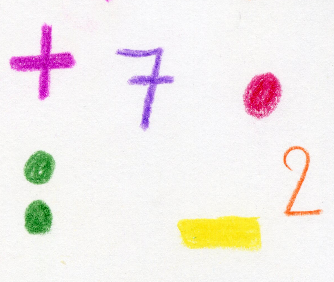 + 7 •
: - 2